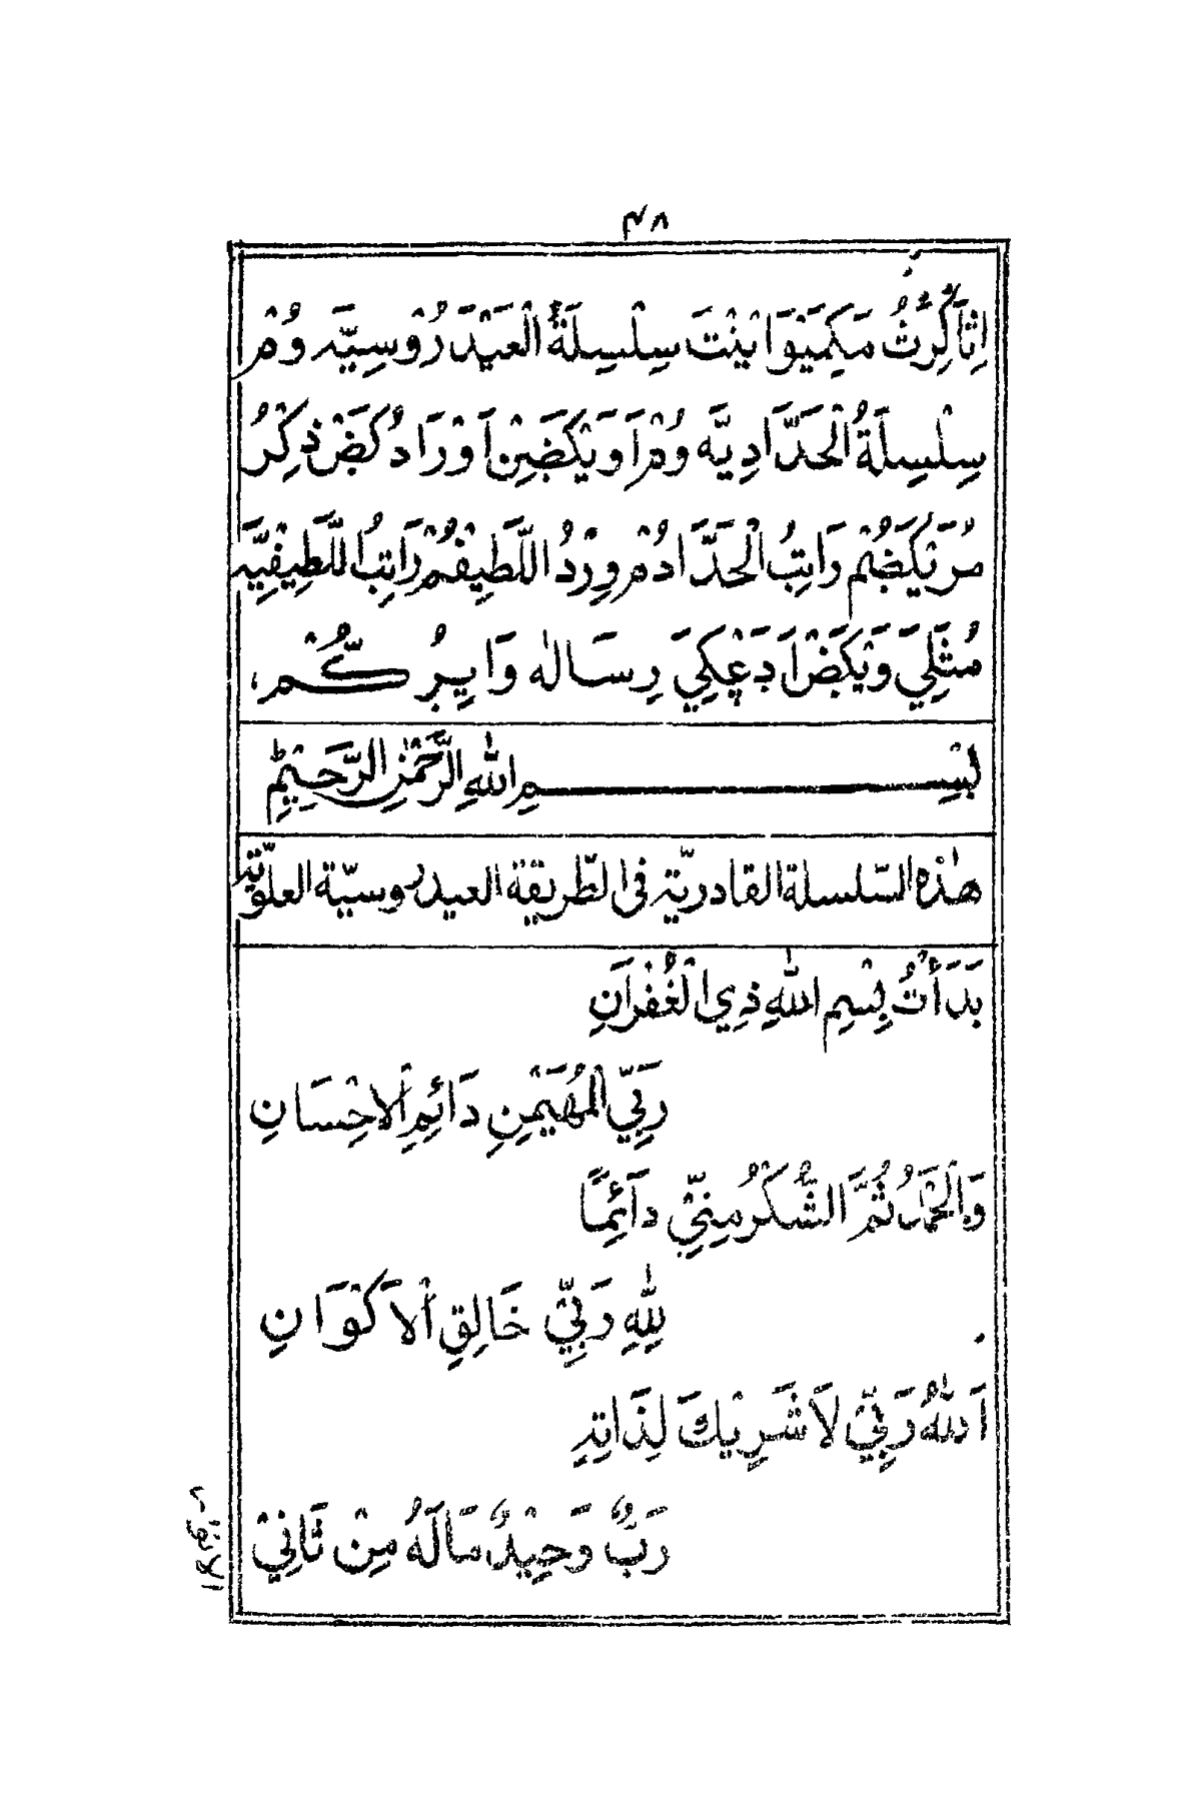 ٤٨
اِتَاكِرُثُ مَكِمَيْوَا يٖنْتَ سِلْسِلَةُ الْعَيْدَرُوْسِيَّه وُمْ
سِلْسِلَةُ الْحَدَّادِيَّه وُمْ اَوَيْكَضِنْ اَوْرَادُكَضْ ذِكْرُ
مُرَيْكَضُم رَاتِبُ الْحَدَّادُمْ وِرْدُ اللَّطِيْفُمْ رَاتِبُ اللَّطِيْفِيَّه
مُتَلِيَ وَيْكَضْ اَدَڠْكِيَ رِسَالٰه وَايِرُكُّمْ،
بِسْمِ اللهِ الرَّحْمٰنِ الرَّحِيْمِ
هٰذه السّلسلة القادريّة فى الطّريقة العيدروسيّة العلويّة
بَدَأْتُ بِسْمِ اللهِ ذِي الْغُفْرَانِ
رَبِّي الْمُهَيْمِنِ دَائِمِ الْاِحْسَانِ
وَالْحَمْدُ ثُمَّ الشُّكْرُ مِنِّيْ دَآئِمًا
لِلّٰهِ رَبِّيْ خَالِقِ الْاَكْوَانِ
اَللّٰهُ رَبِّيْ لَا شَرِيْكَ لِذَاتِهِ
رَبٌّ وَحِيْدٌ مَا لَهُ مِنْ ثَانِيْ